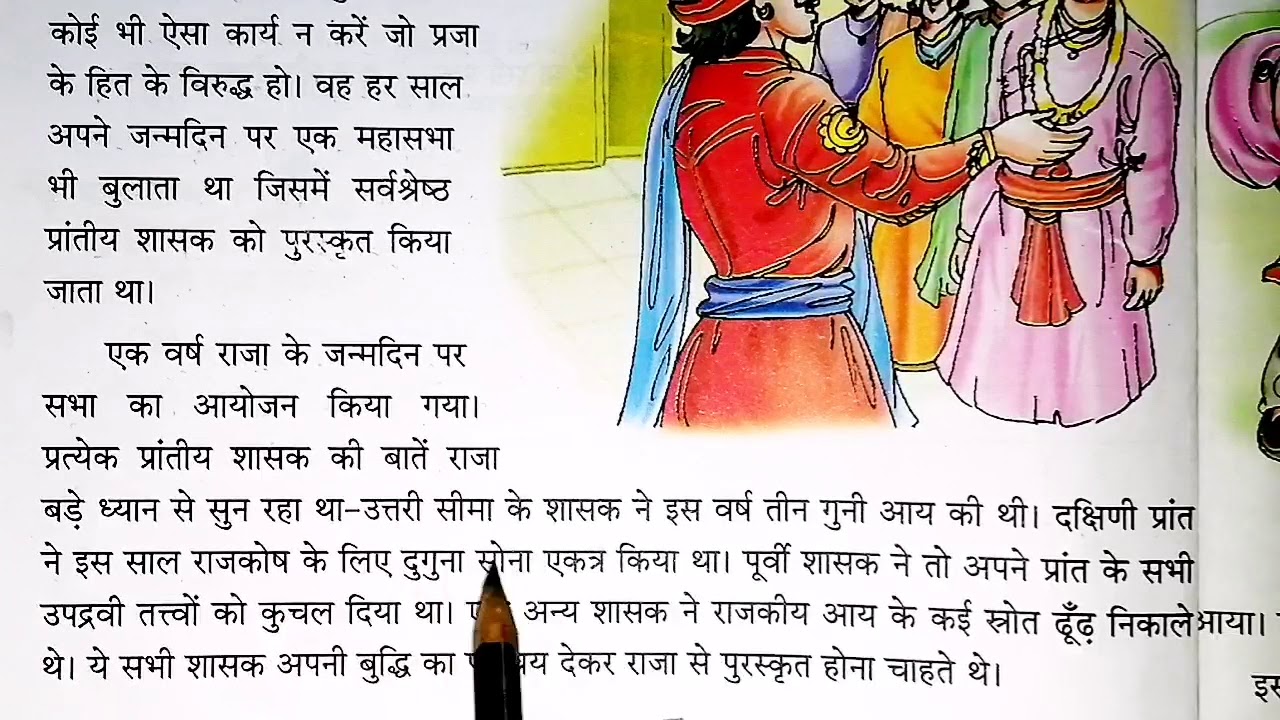 कोई भी ऐसा कार्य न करें जो प्रजा
के हित के विरुद्ध हो। वह हर साल
अपने जन्मदिन पर एक महासभा
भी बुलाता था जिसमें सर्वश्रेष्ठ
प्रांतीय शासक को पुरस्कृत किया
जाता था।
एक वर्ष राजा के जन्मदिन पर
सभा का आयोजन किया गया।
प्रत्येक प्रांतीय शासक की बातें राजा
बड़े ध्यान से सुन रहा था-उत्तरी सीमा के शासक ने इस वर्ष तीन गुनी आय की थी। दक्षिणी प्रांत
ने इस साल राजकोष के लिए दुगुना सोना एकत्र किया था। पूर्वी शासक ने तो अपने प्रांत के सभी
उपद्रवी तत्त्वों को कुचल दिया था। अन्य शासक ने राजकीय आय के कई स्रोत ढूँढ़ निकाले
थे। ये सभी शासक अपनी बुद्धि का देकर राजा से पुरस्कृत होना चाहते थे।
आया।